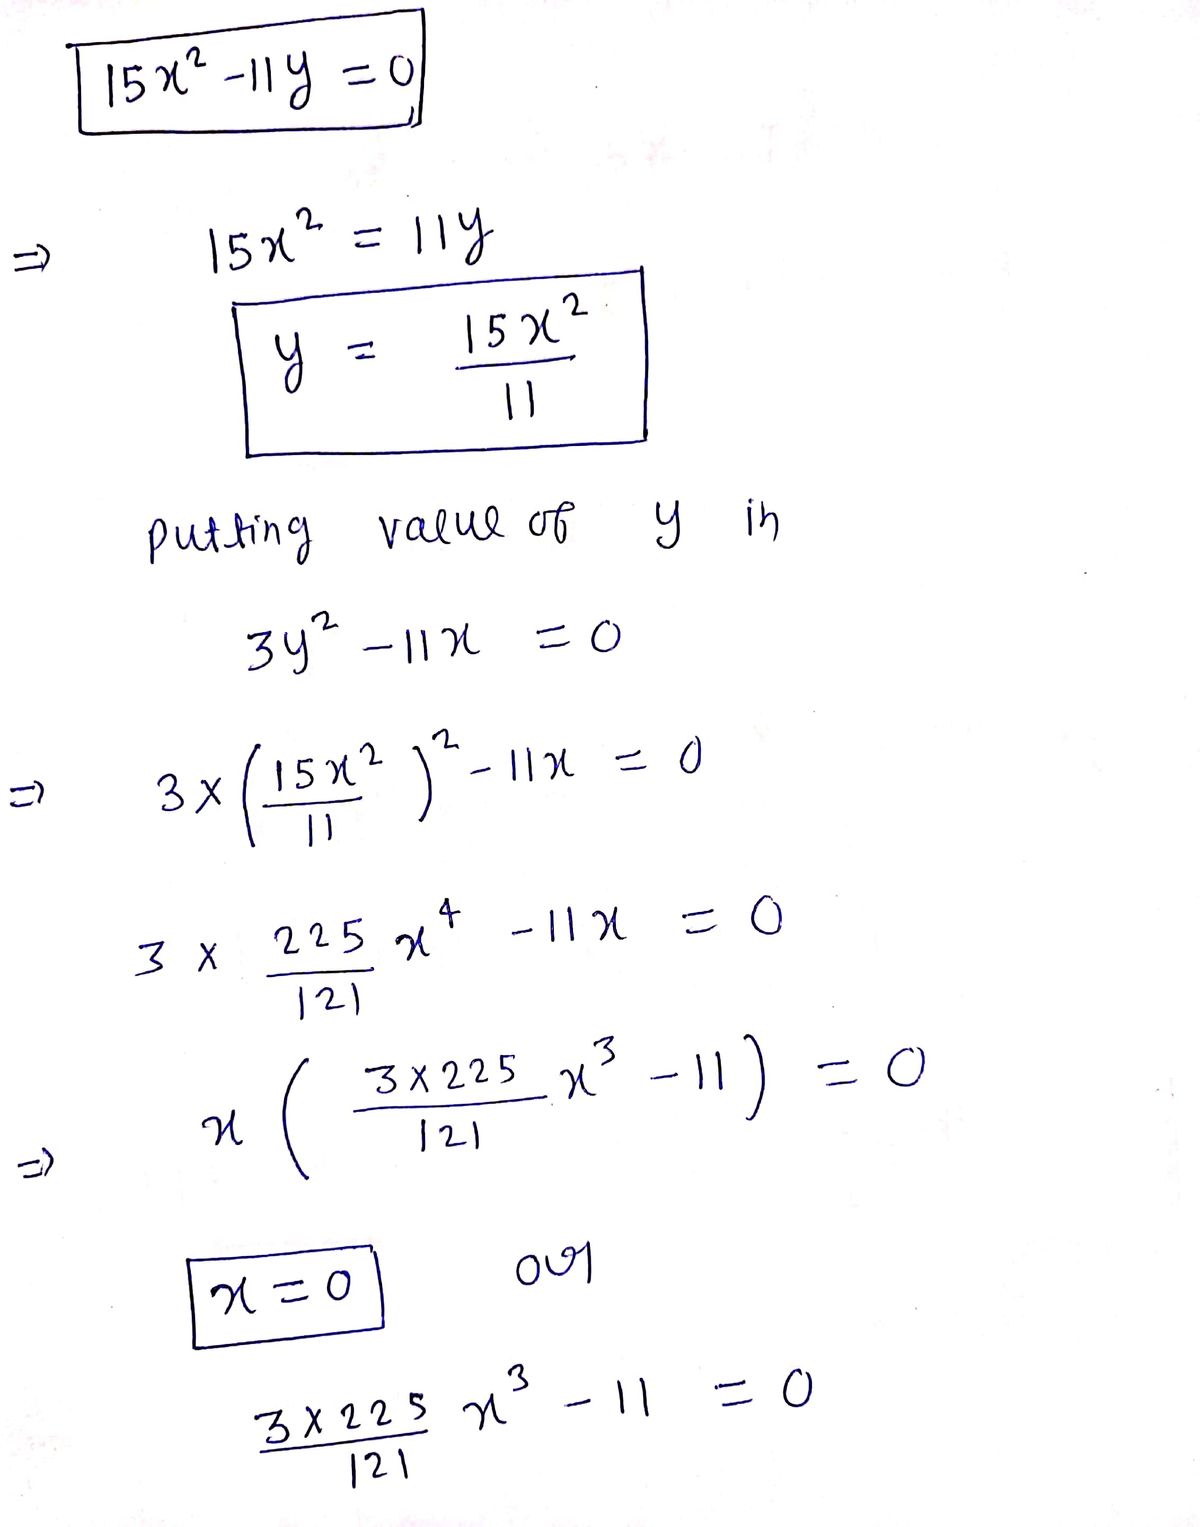 15x² - 11y = 0
⇒ 15x² = 11y
y = 15x²/11
putting value of y in
3y² - 11x = 0
⇒ 3 × (15x²/11)² - 11x = 0
3 × 225/121 x⁴ - 11x = 0
⇒ x (3×225/121 x³ - 11) = 0
x = 0 or
3×225/121 x³ - 11 = 0